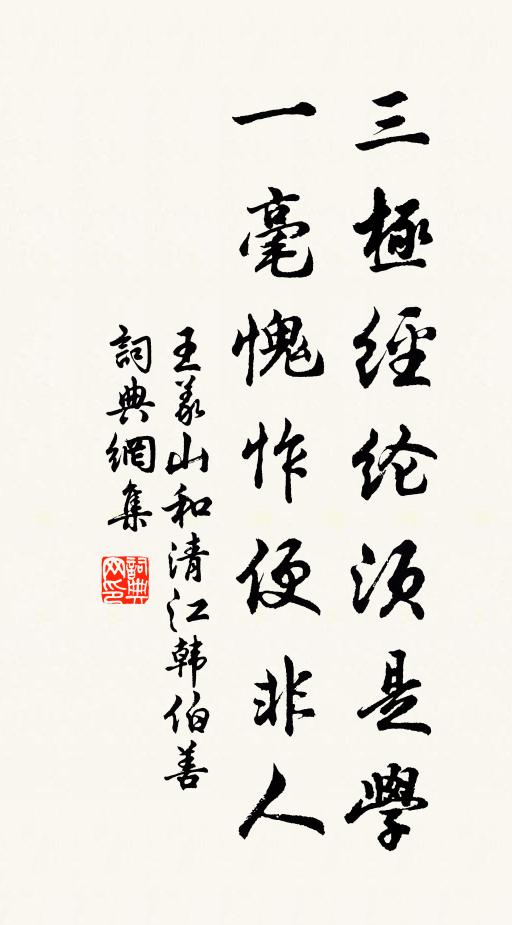 三極經纶須是學
一毫愧怍便非人
王義山和清江韩伯善
詞典網集
詞典网印